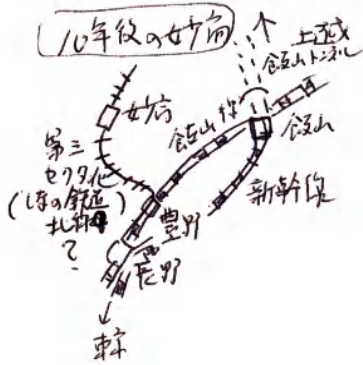 10年後の妙高
上越
飯山トンネル
妙高
飯山線
飯山
第三
セクタ化
(しなの鉄道
北線
?
新幹線
豊野
長野
東京